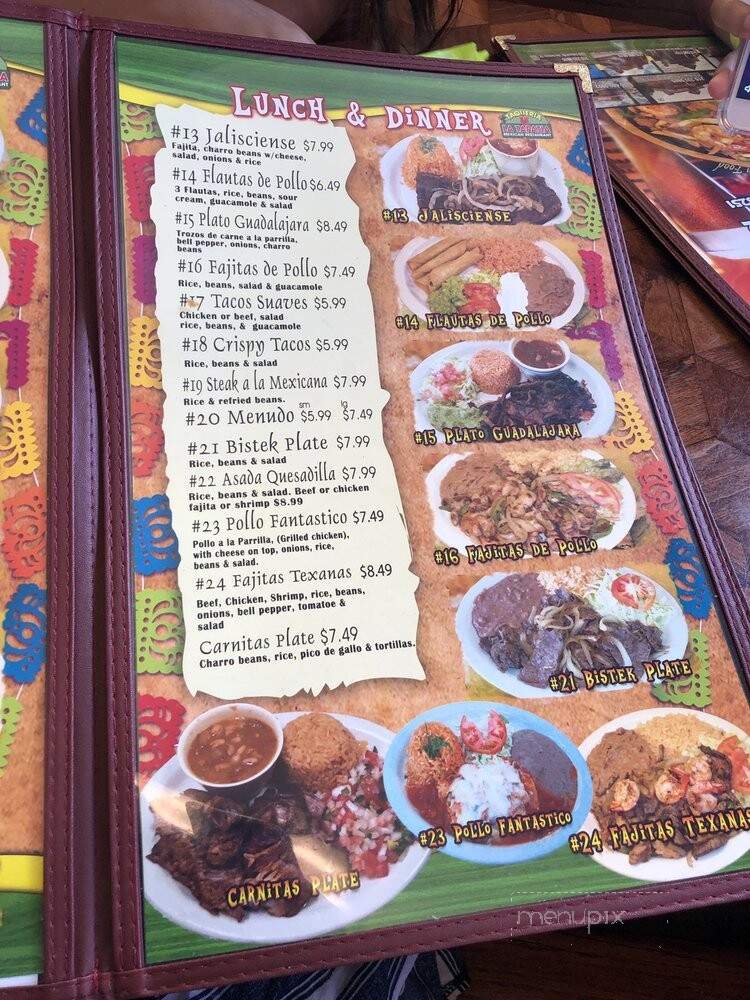 LUNCH & DINNER
TAQUERIA
LA TAPATIA
MEXICAN RESTAURANT
#13 Jalisciense $7.99
Fajita, charro beans w/cheese,
salad, onions & rice
#14 Flautas de Pollo $6.49
3 Flautas, rice, beans, sour
cream, guacamole & salad
#15 Plato Guadalajara $8.49
Trozos de carne a la parrilla,
bell pepper, onions, charro
beans
#16 Fajitas de Pollo $7.49
Rice, beans, salad & guacamole
#17 Tacos Suaves $5.99
Chicken or beef, salad
rice, beans, & guacamole
#18 Crispy Tacos $5.99
Rice, beans & salad
#19 Steak a la Mexicana $7.99
Rice & refried beans.
sm lg
#20 Menudo $5.99 $7.49
#21 Bistek Plate $7.99
Rice, beans & salad
#22 Asada Quesadilla $7.99
Rice, beans & salad. Beef or chicken
fajita or shrimp $8.99
#23 Pollo Fantastico $7.49
Pollo a la Parrilla, (Grilled chicken),
with cheese on top, onions, rice,
beans & salad.
#24 Fajitas Texanas $8.49
Beef, Chicken, Shrimp, rice, beans,
onions, bell pepper, tomatoe &
salad
Carnitas Plate $7.49
Charro beans, rice, pico de gallo & tortillas.
#13 JALISCIENSE
#14 FLAUTAS DE POLLO
#15 PLATO GUADALAJARA
#16 FAJITAS DE POLLO
#21 BISTEK PLATE
#23 POLLO FANTASTICO
#24 FAJITAS TEXANAS
CARNITAS PLATE
menupix